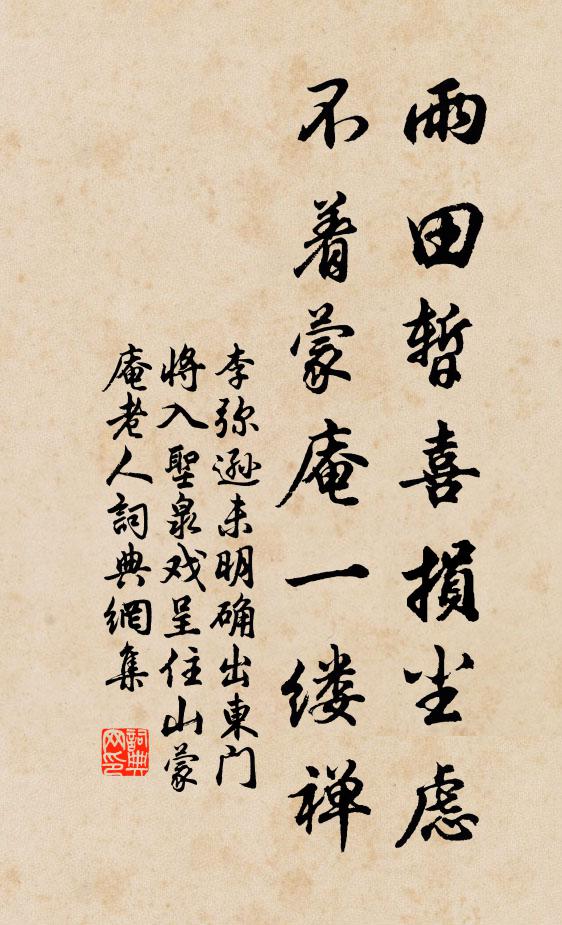 雨田暫喜損尘虑
不着蒙庵一缕禅
李弥逊未明确出東门
将入聖泉戏呈住山蒙
庵老人詞典網集
詞典网印